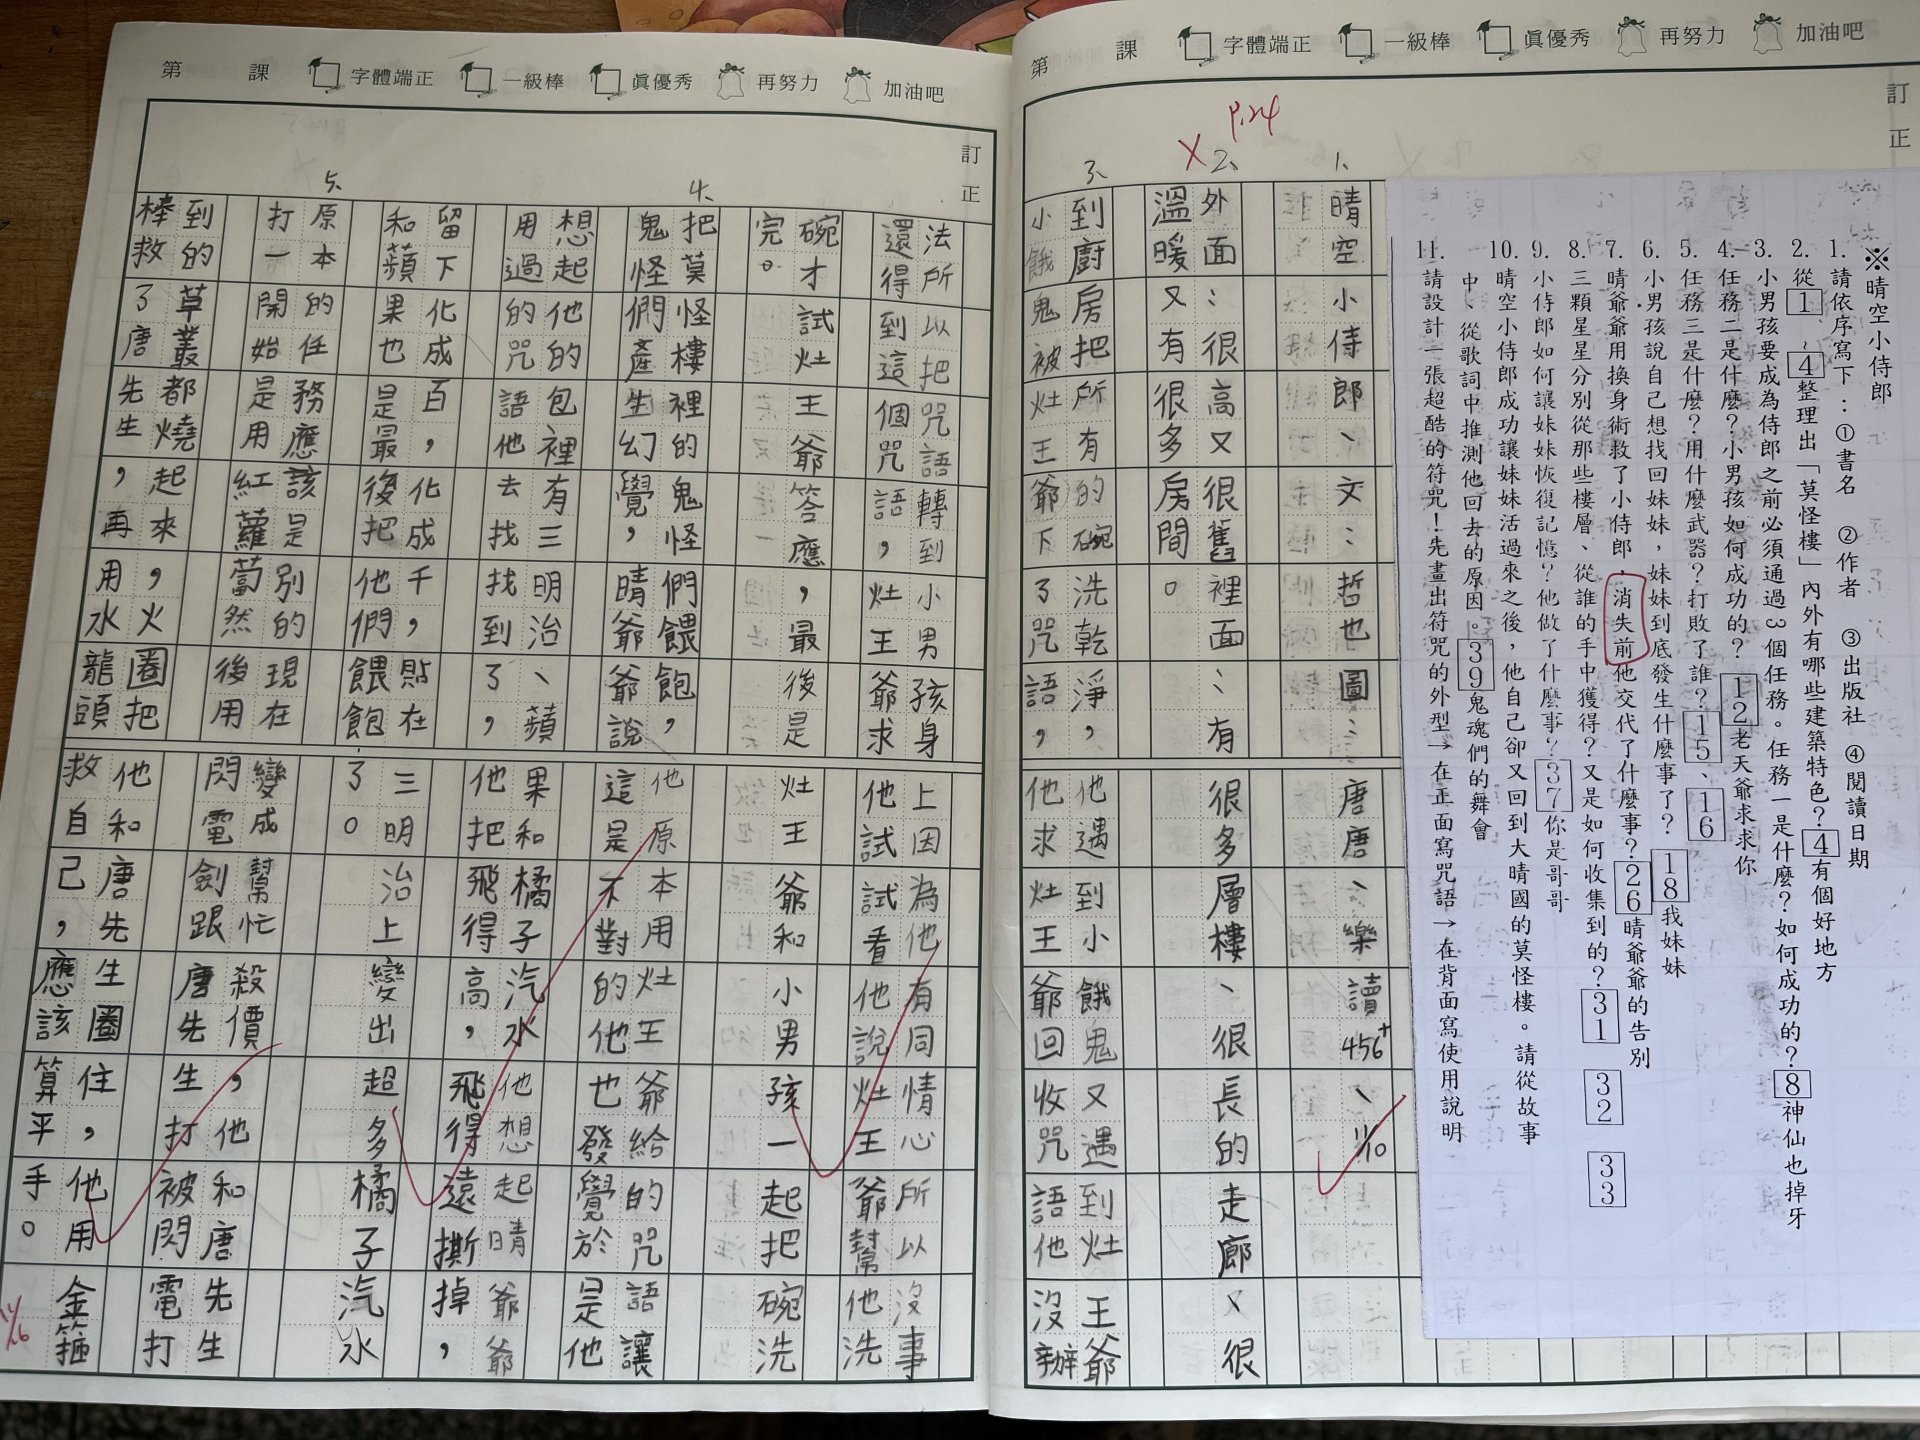 第 課 字體端正 一級棒 眞優秀 再努力 加油吧
訂正
※晴空小侍郎
1.請依序寫下:①書名 ②作者 ③出版社 ④閱讀日期
2.從1、4整理出「莫怪樓」內外有哪些建築特色?4有個好地方
3.小男孩要成為侍郎之前必須通過3個任務。任務一是什麼?如何成功的?8神仙也掉牙
4.任務二是什麼?小男孩如何成功的?12老天爺求求你
5.任務三是什麼?用什麼武器?打敗了誰?15、16
6.小男孩說自己想找回妹妹,妹妹到底發生什麼事了?18我妹妹
7.晴爺爺用換身術救了小侍郎,消失前他交代了什麼事?26晴爺爺的告別
8.三顆星星分別從那些樓層、從誰的手中獲得?又是如何收集到的?31 32 33
9.小侍郎如何讓妹妹恢復記憶?他做了什麼事?37你是哥哥
10.晴空小侍郎成功讓妹妹活過來之後,他自己卻又回到大晴國的莫怪樓。請從故事
中、從歌詞中推測他回去的原因。39鬼魂們的舞會
11.請設計一張超酷的符咒!先畫出符咒的外型→在正面寫咒語→在背面寫使用說明
1、晴空小侍郎、文:哲也圖:唐唐、樂讀456+、11/10
P.24
2、外面:很高又很舊裡面:有很多層樓、很長的走廊又很
溫暖又有很多房間。
3、到廚房把所有的碗洗乾淨,他遇到小餓鬼又遇到灶王爺
小餓鬼被灶王爺下了咒語,他求灶王爺回收咒語他沒辦
第 課 字體端正 一級棒 眞優秀 再努力 加油吧
訂正
法所以把咒語轉到小男孩身上因為他有同情心所以沒事
還得到這個咒語,灶王爺求他試試看他說灶王爺幫他洗
碗才試灶王爺答應,最後是灶王爺和小男孩一起把碗洗
完。
4、把莫怪樓裡的鬼怪們餵飽,他原本用灶王爺給的咒語讓
鬼怪們產生幻覺,晴爺爺說這是不對的他也發覺於是他
想起他的包裡有三明治、蘋果和橘子汽水他想起晴爺爺
用過的咒語他去找找到了,他把飛得高,飛得遠撕掉,
留下化成百,化成千,貼在三明治上變出超多橘子汽水
和蘋果也是最後把他們餵飽了。
5、原本的任務應該是別的現在變成幫忙殺價,他和唐先生
打一開始是用紅蘿蔔然後用閃電劍跟唐先生打被閃電打
到的草叢都燒起來,火圈把他和唐先生圈住,他用金箍
棒救了唐先生,再用水龍頭救自己,應該算平手。